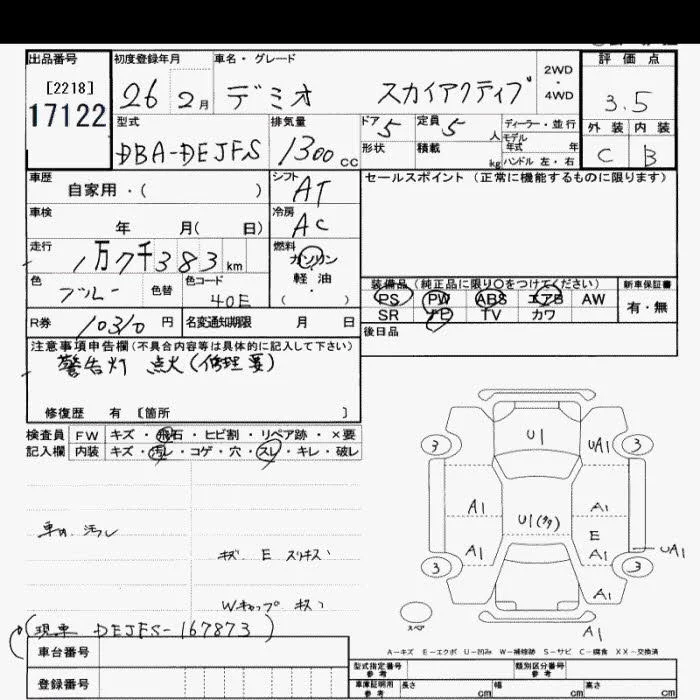 出品番号 初度登録年月 車名・グレード 評価点
[2218] 17122 26 2月 デミオ スカイアクティブ 2WD・4WD 3.5
型式 排気量 ドア 5 定員 5人 ディーラー・並行 外装 内装
DBA-DEJFS 1300cc 形状 積載 kg モデル年式 年 ハンドル 左・右 C B
車歴 シフト セールスポイント(正常に機能するものに限ります)
自家用・( ) AT
車検 年 月(日) 冷房 AC
走行 1万7千383km 燃料 ガソリン・軽油・( )
色 ブルー 色替 色コード 40E
装備品(純正品に限り〇をつけてください) 新車保証書
PS PW ABS エアB AW 有・無
SR ナビ TV カワ
R券 10310円 名変通知期限 月 日 後日品
注意事項申告欄(不具合内容等は具体的に記入して下さい)
警告灯 点火(修理要)
修復歴 有 [箇所 ]
検査員 FW キズ・飛石・ヒビ割・リペア跡・×要
記入欄 内装 キズ・汚レ・コゲ・穴・スレ・キレ・破レ
U1 UA1 3 3
A1 U1(タ) A1
E
A1 A1 UA1
3 3
A1
A1
汚レ
キズ E スリキズ
Wキャップ キズ
スペア
(現車 DEJFS-167873)
A-キズ E-エクボ U-凹み W-補修跡 S-サビ C-腐食 XX-交換済
車台番号 型式指定番号 参考 類別区分番号 参考
登録番号 車庫証明用 参考 長さ cm 幅 cm 高さ cm